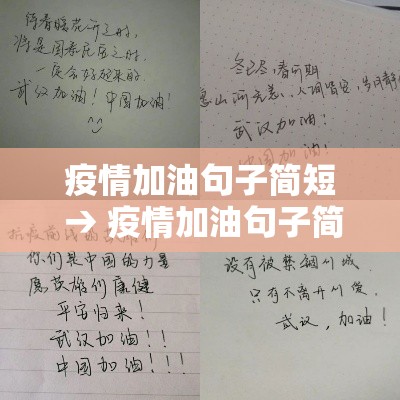 待春暖花开之时,
将是国泰民安之时.
一定会好起来的.
武汉加油！中国加油！
冬已尽,春可期
愿山河无恙、人间皆安,岁月静
武汉加油！
中国加油！
疫情加油句子简短
→ 疫情加油句子简
你们是中国的力量
愿英雄们康健
平安归来！
武汉加油！！
中国加油！！！
没有被禁锢的城,
只有不离开的爱.
武汉,加油！